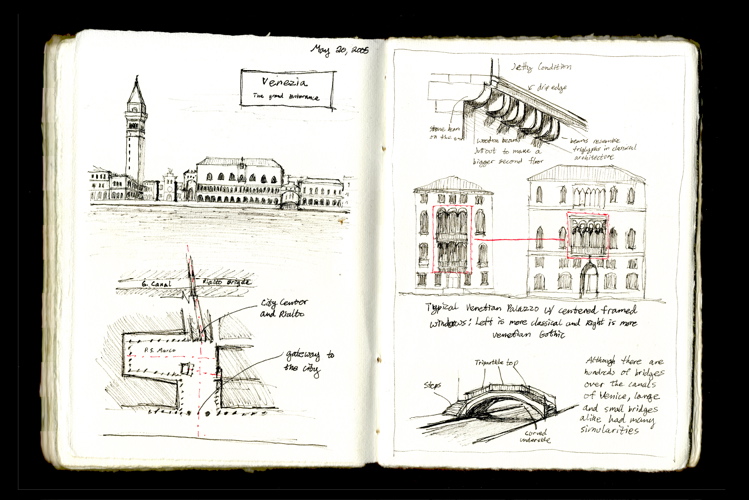 May 20, 2005
Venezia
The grand enterance
G. Canal
Rialto Bridge
City Center
and Rialto
P.S. Marco
gateway to
the city
Jetty Condition
drip edge
stone beam
on the end
wooden beams
jut out to make a
bigger second floor
beams resemble
triglyphs in classical
architecture
Typical Venetian Palazzo w/ centered framed
windows: Left is more classical and Right is more
Venetian Gothic
Tripartite top
Steps
curved
underside
Although there are
hundrids of bridges
over the canals
of Venice, large
and small bridges
alike had many
simularities